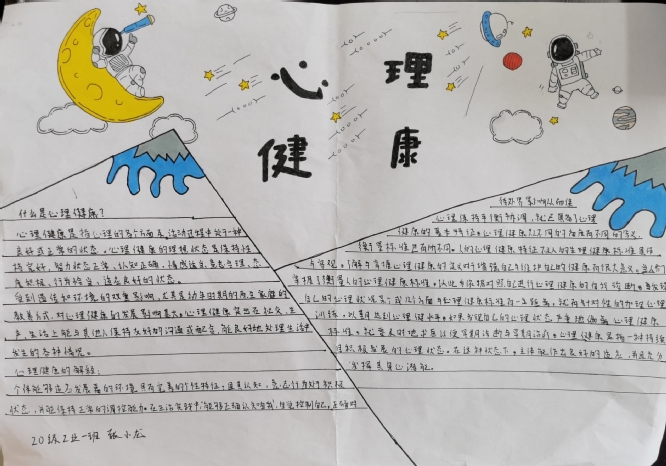 心理
健康
什么是心理健康?
心理健康是指心理的各个方面及活动过程中处于一种
良好或正常的状态。心理健康的理想状态是保持性
格完好,智力状态正常,认知正确,情感适当,意志合理,态
度积极,行为恰当,适应良好的状态。
受到遗传和环境的双重影响,尤其是幼年时期的原生家庭的
教养方式,对心理健康的发展影响甚大。心理健康突出在社交、生
产、生活上能与其他人保持较好的沟通或配合,能良好地处理生活中
发生的各种情况。
心理健康的解释:
个体能够适应发展着的环境,具有完善的个性特征;且其认知,
状态,并能保持正常的调控能力。在生活实践中,能够正确认识自我,自觉控制自己,正确对
20级 班
待外界影响从而使
心理保持平衡协调,就已具备了心理
健康的基本特征。心理健康从不同的角度有不同的含义,
衡量标准也有所不同。人的心理健康特征
了解与掌握心理健康的定义对于增强
掌握了衡量人的心理健康标准,以此为依据对照自己进行心理健康的自我诊断。发现
自己的心理状况某个或几个方面与心理健康标准有一定距离,就有针对性的加强心理
训练,以期达到心理健康水平。如果发现自己的心理状态严重地偏离心理健康
标准,就要及时地求医以便早期诊断与早期治疗。心理健康是指一种持续
且积极发展的心理状态。在这种状态下,主体能作出良好的适应,并且充分
发挥其身心潜能。